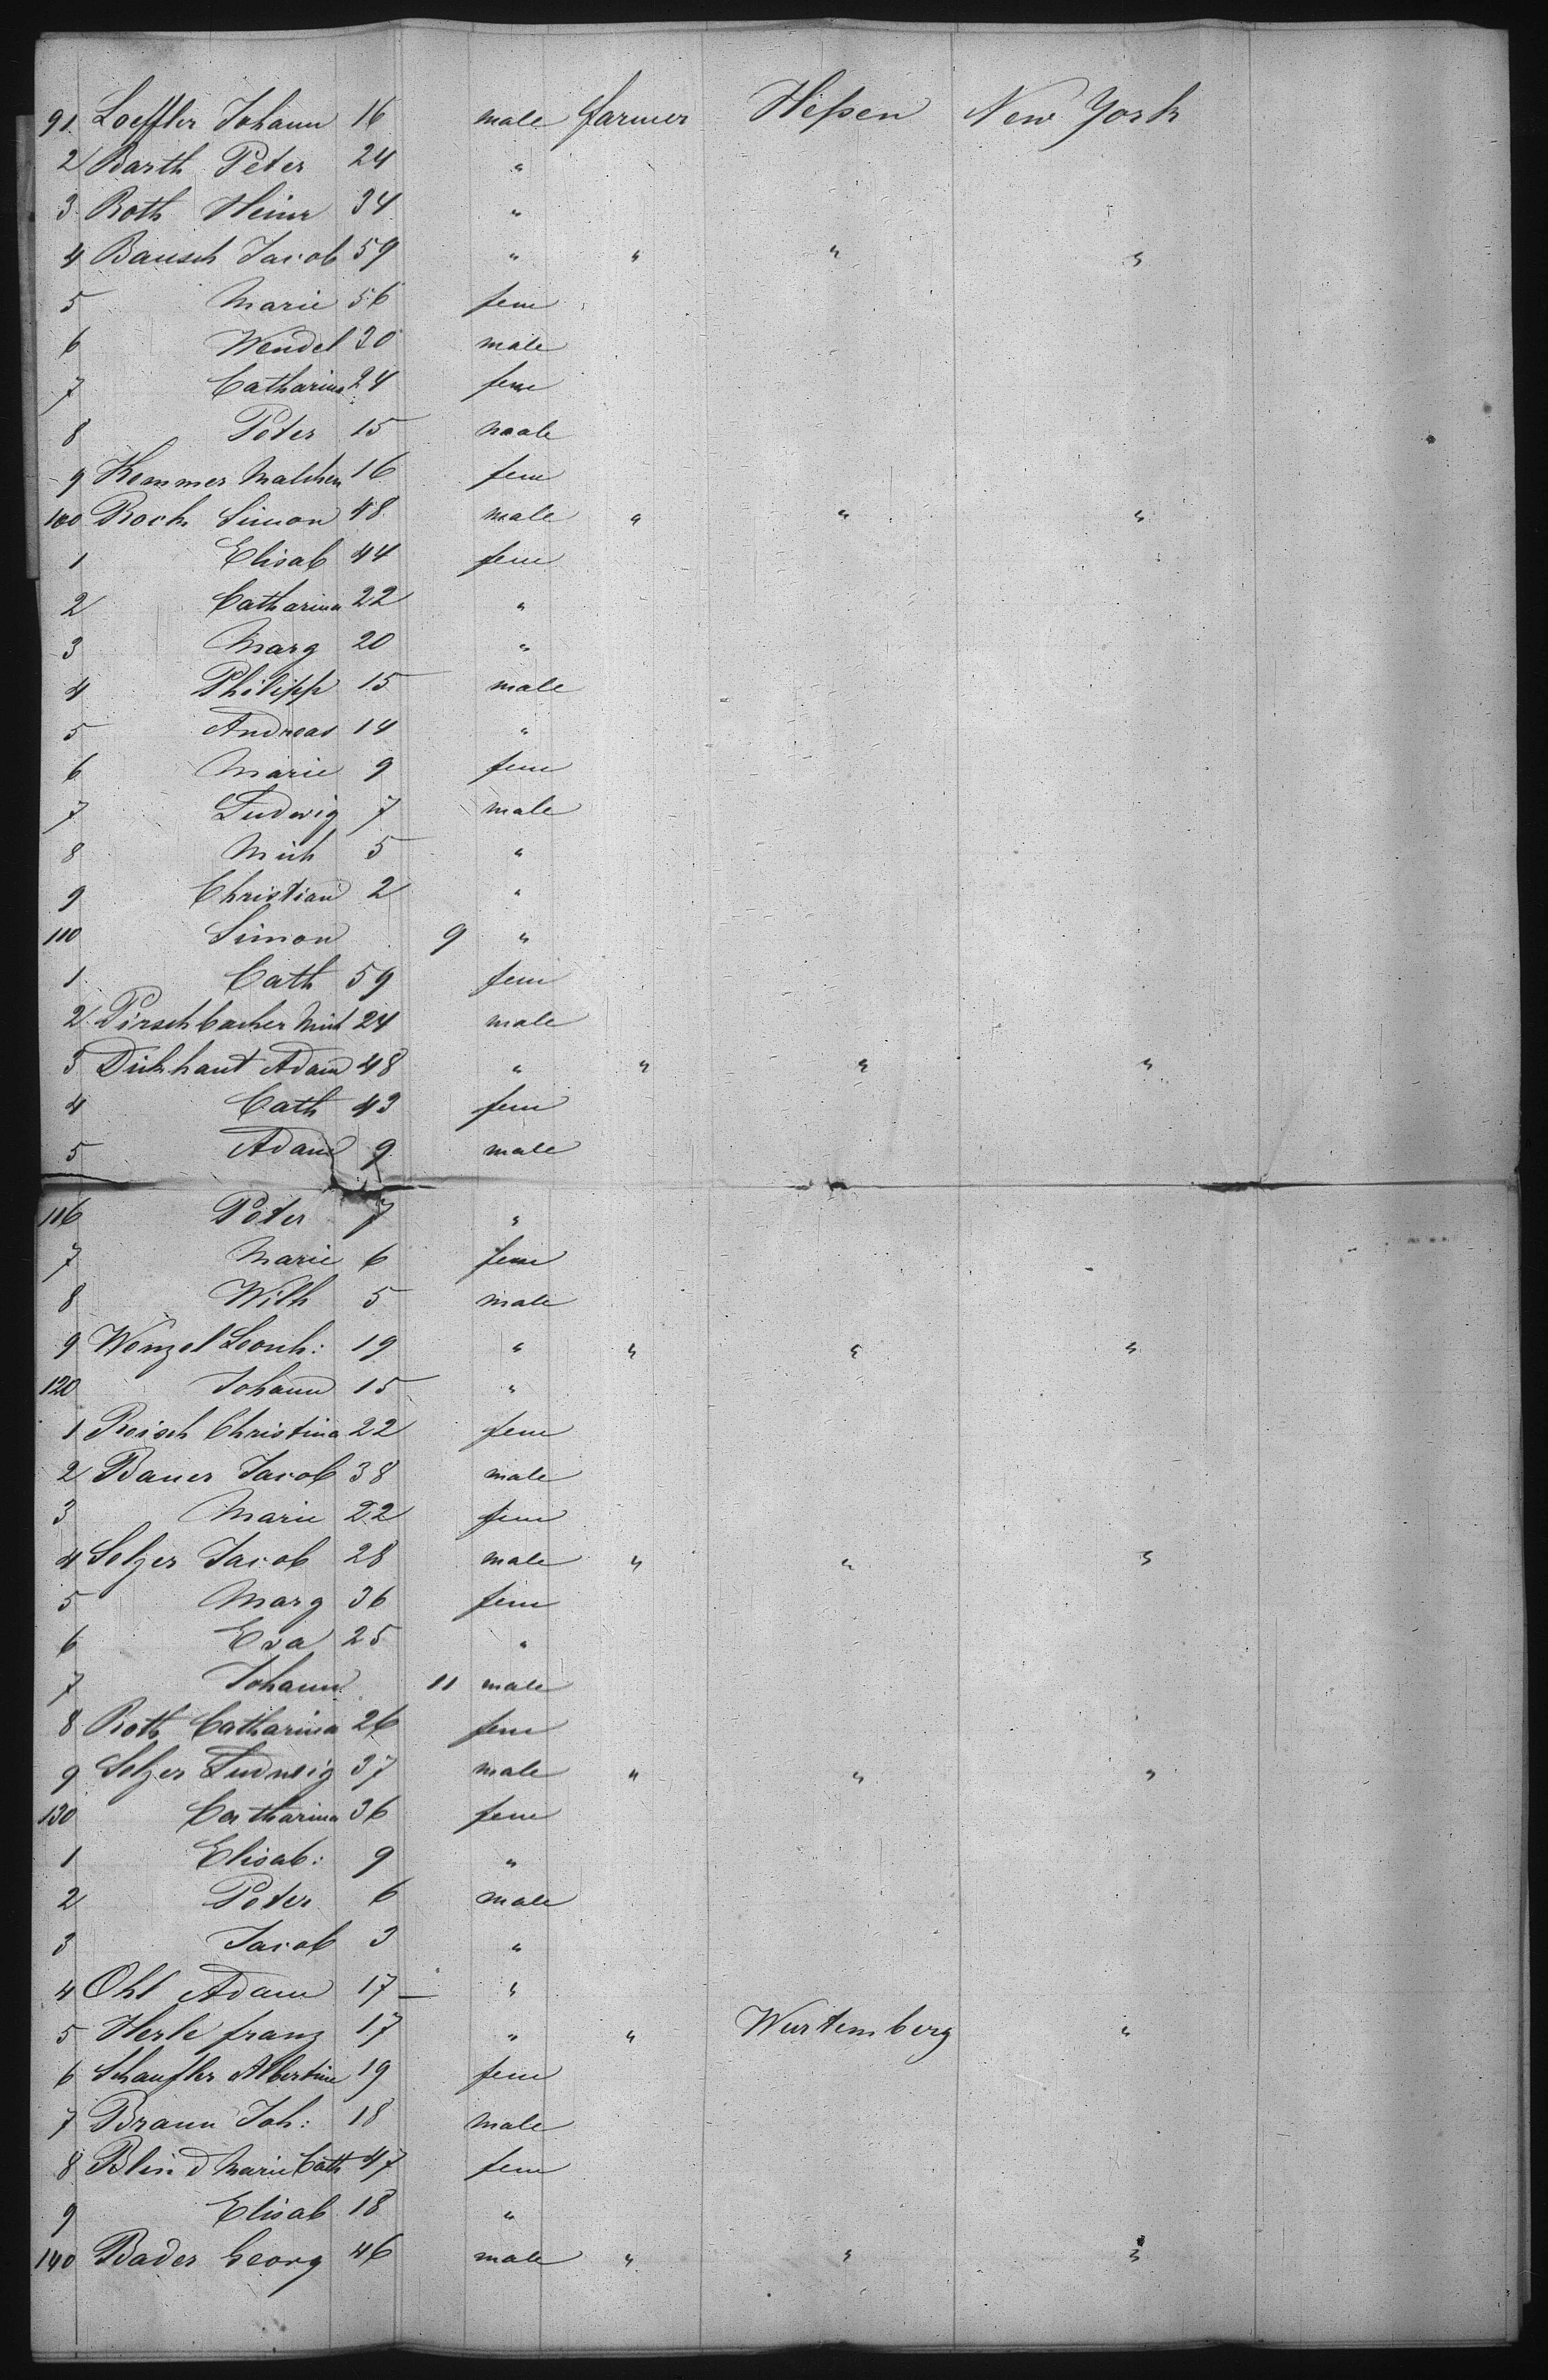 91. Loeffler Johann 16 male farmer Heßen New York
2 Barth Peter 24 "
3 Roth Heinr 34 "
4 Bausch Jacob 59 " " " "
5 Marie 56 fem
6 Wendel 30 male
7 Catharina 24 fem
8 Peter 15 male
9 Kemmer Malchen 16 fem
100 Roch Simon 48 male " " "
1 Elisab 44 fem
2 Catharina 22 "
3 Marg 20 "
4 Philipp 15 male
5 Andreas 14 "
6 Marie 9 fem
7 Ludwig 7 male
8 Mich 5 "
9 Christian 2 "
110 Simon 9 "
1 Cath 59 fem
2 Pirschbacher Mich 24 male
3 Dickhaut Adam 48 " " " "
4 Cath 43 fem
5 Adam 9 male
116 Peter 7 "
7 Marie 6 fem
8 Wilh 5 male
9 Wenzel Leonh: 19 " " " "
120 Johann 15 "
1 Reisch Christina 22 fem
2 Bauer Jacob 38 male
3 Marie 22 fem
4 Selzer Jacob 28 male " " "
5 Marg 36 fem
6 Eva 25 "
7 Johann 11 male
8 Roth Catharina 26 fem
9 Selzer Ludwig 37 male " " "
130 Catharina 36 fem
1 Elisab: 9 "
2 Peter 6 male
3 Jacob 3 "
4 Ohl Adam 17 "
5 Herle franz 17 " " Wurtemberg "
6 Schaufler Albertine 19 fem
7 Braun Joh: 18 male
8 Blind Marie Cath 47 fem
9 Elisab 18 "
140 Bader Georg 46 male " " "